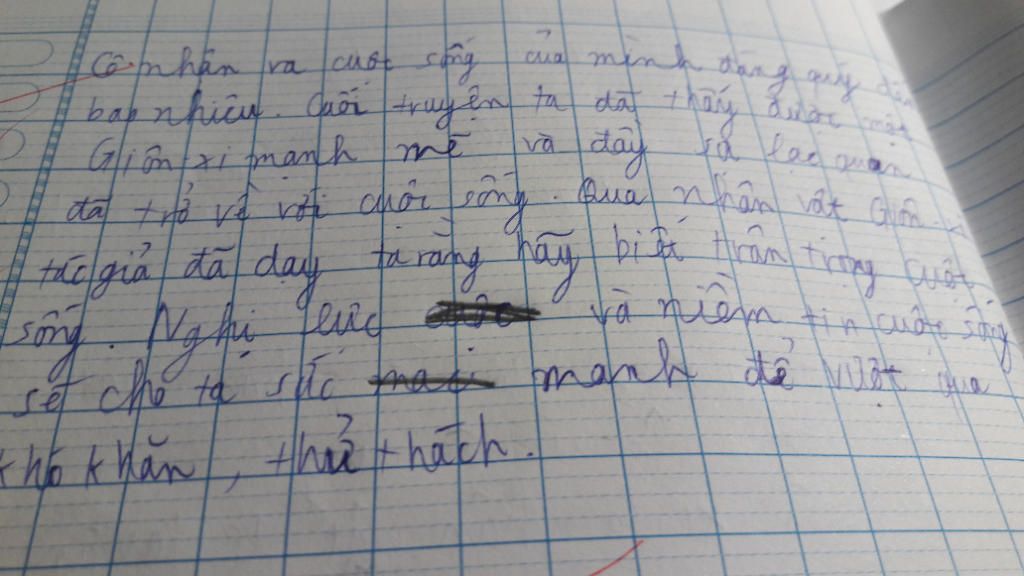 Cô nhân ra cuôc sống của mình đáng quý đến
bao nhiêu. Cuối truyện ta đã thấy được một
Giôn-xi mạnh mẽ và đầy sự lạc quan
đã trở về với cuôc sống. Qua nhân vât Giôn-xi
tác giả đã dạy ta rằng hãy biết trân trọng cuôc
sống. Nghi lực và niềm tin cuôc sống
sẽ cho ta sức mạnh để vượt qua
khó khăn, thử thách.